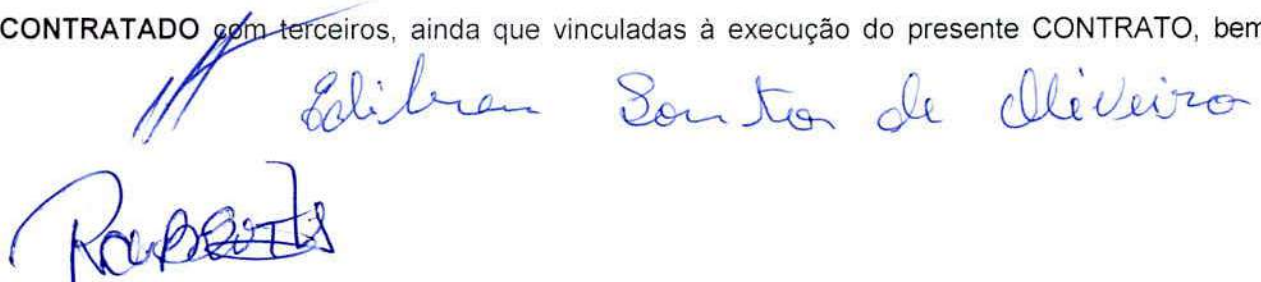 CONTRATADO com terceiros, ainda que vinculadas à execução do presente CONTRATO, bem
Santos de Oliveira